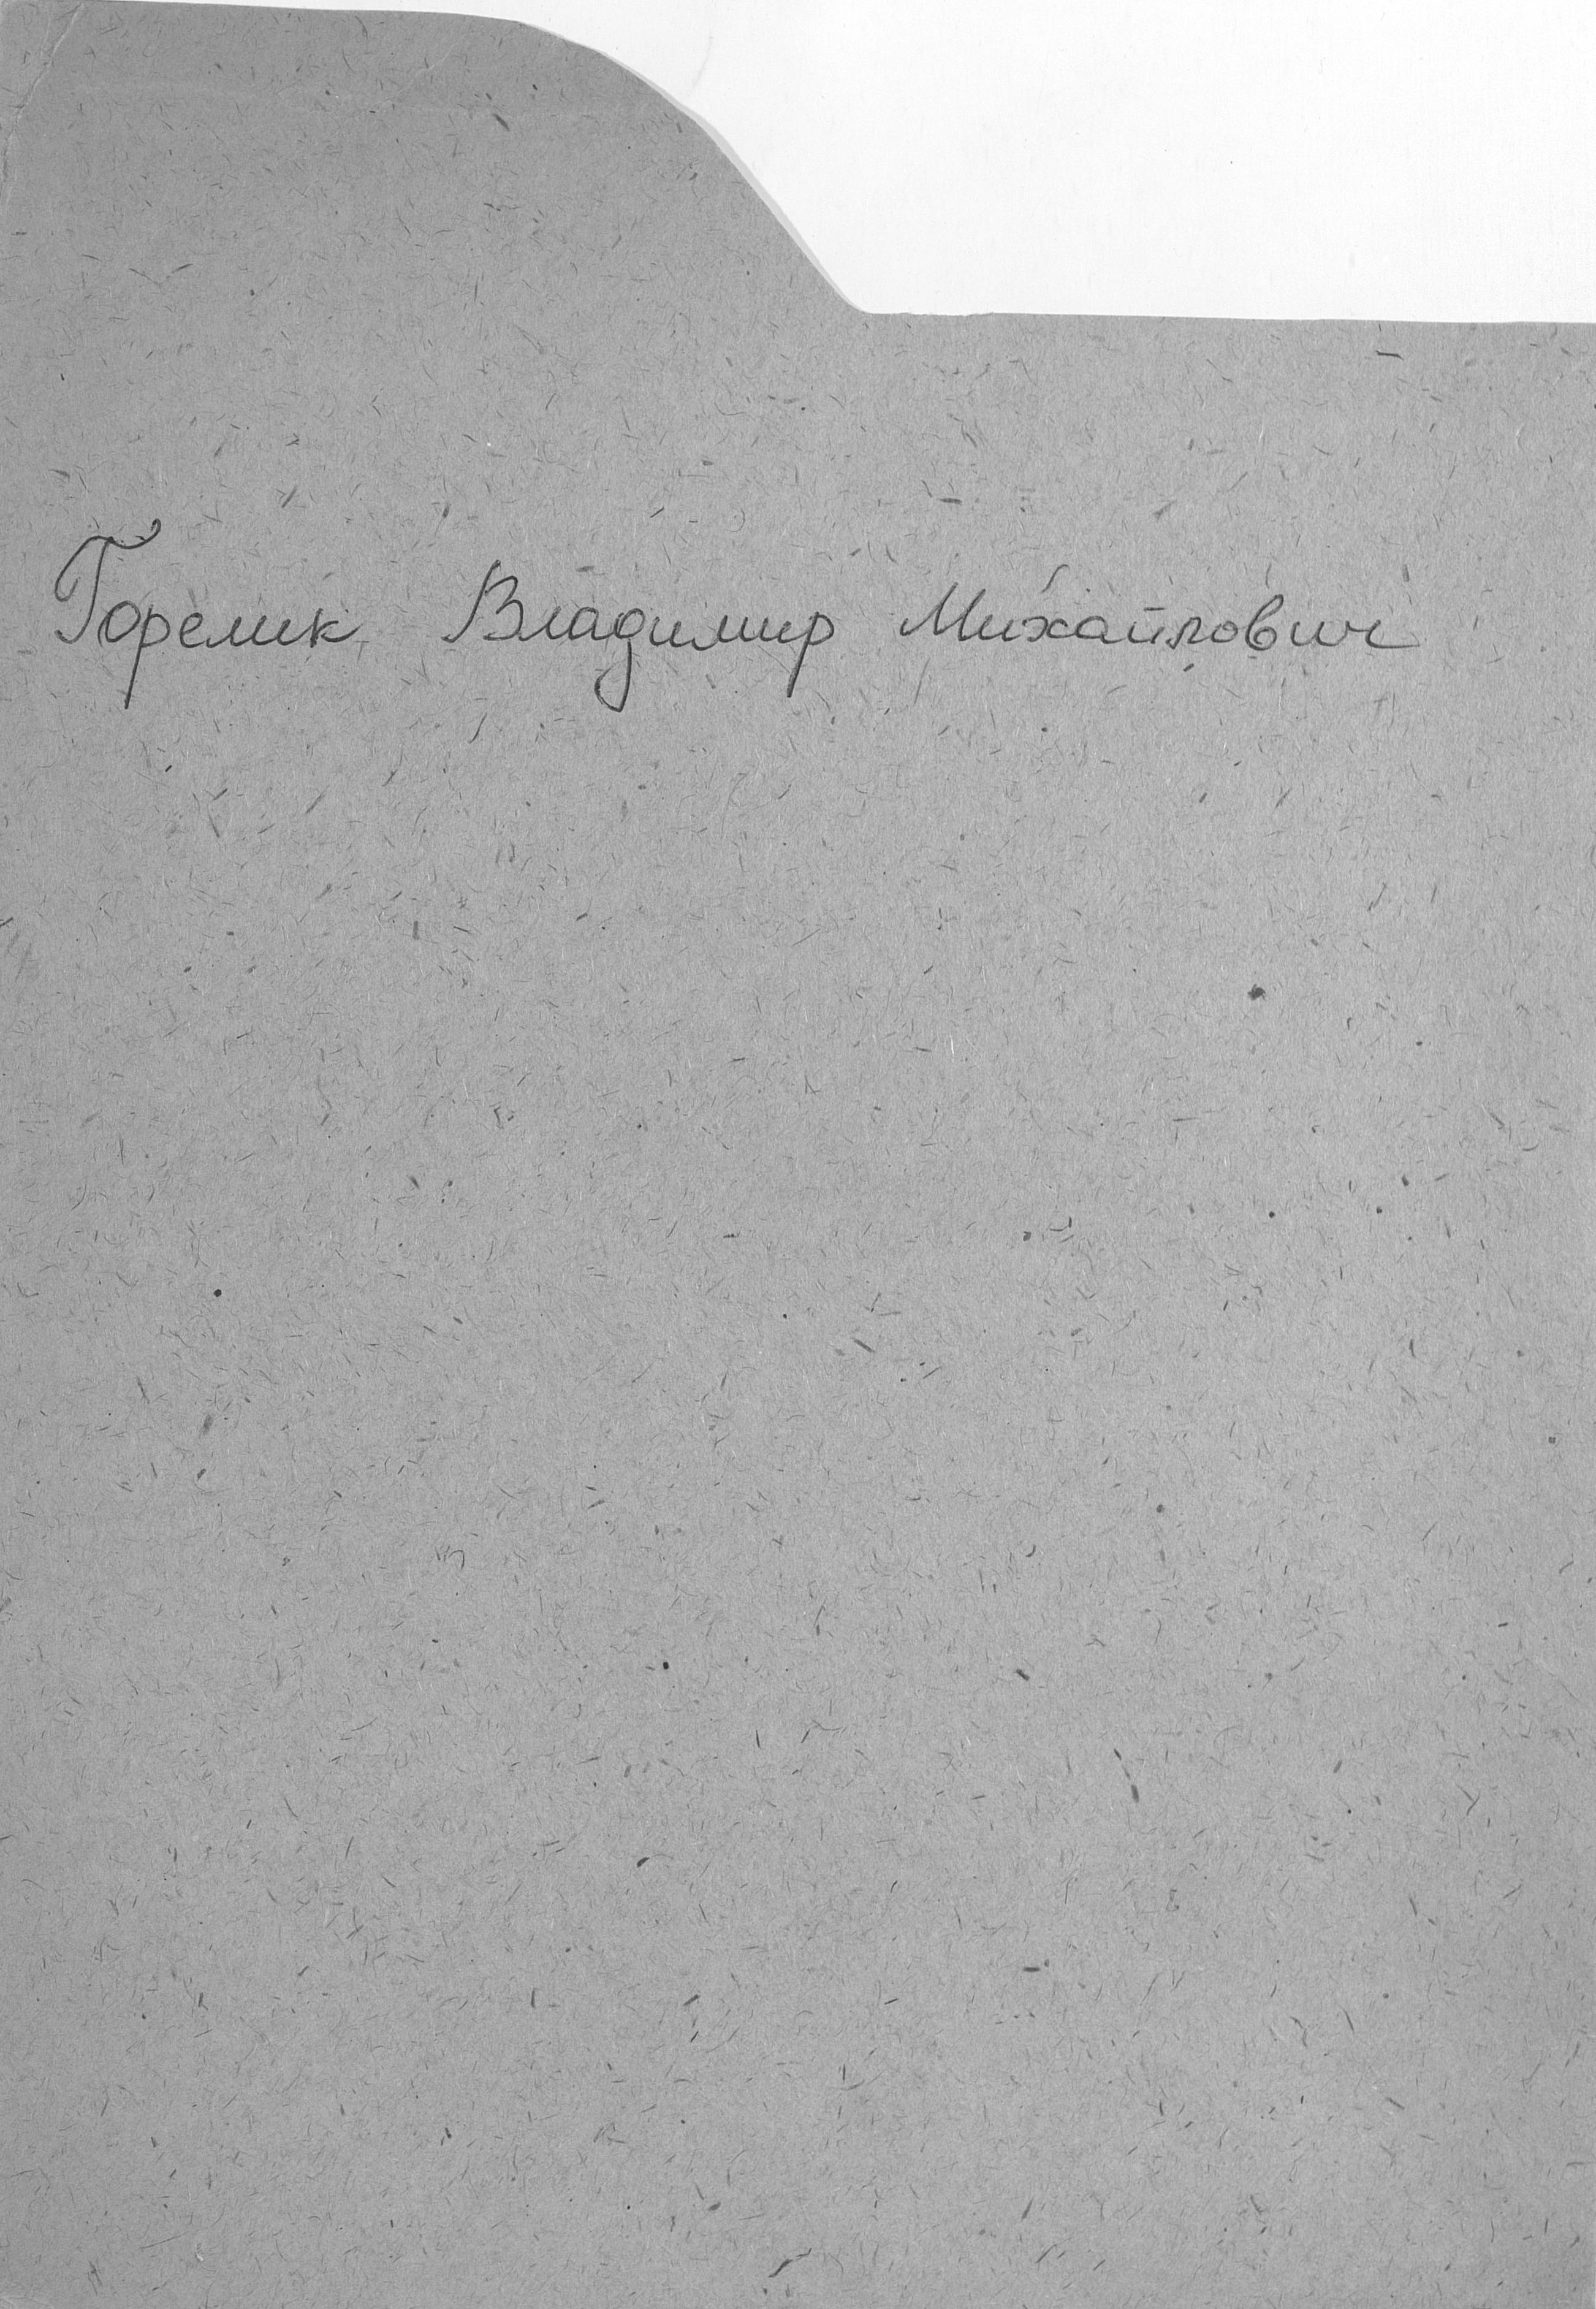 Горелик Владимир Михайлович